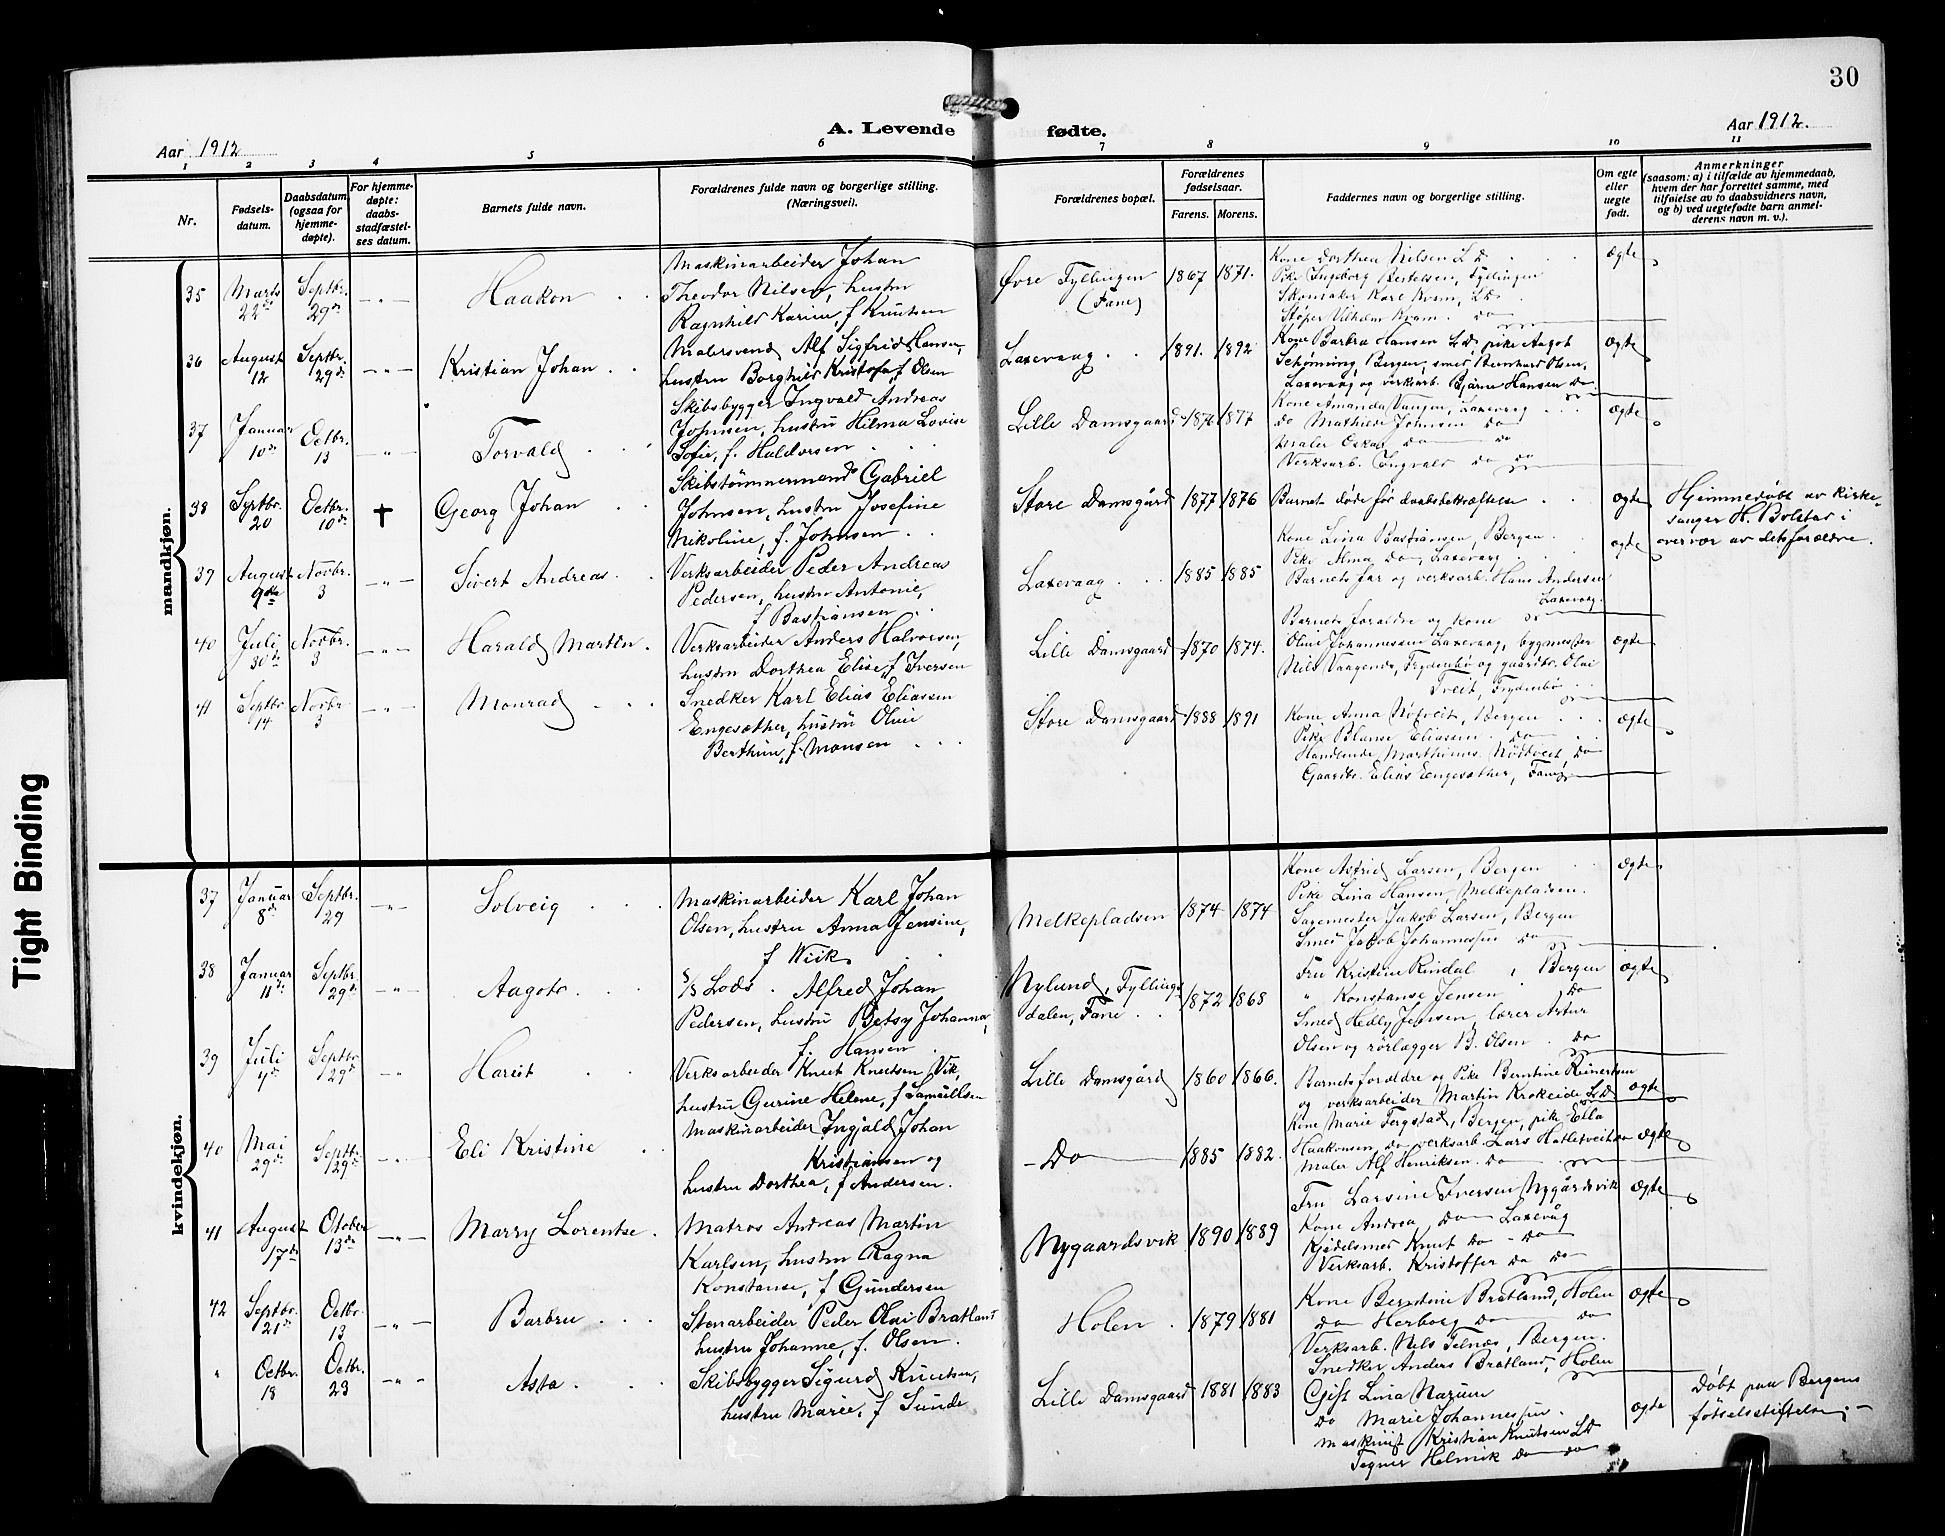 30
A. Levende fødte.
Aar 1912
Aar 1912.
1 2 3 4 5 6 7 8 9 10 11
Nr.
Fødsels-
datum.
Daabsdatum
(ogsaa for
hjemme-
døpte).
For hjemme-
døpte:
daabs-
stadfæstel-
ses datum.
Barnets fulde navn.
Forældrenes fulde navn og borgerlige stilling.
(Næringsvei).
Forældrenes bopæl.
Forældrenes
fødselsaar.
Farens. Morens.
Faddernes navn og borgerlige stilling.
Om egte
eller
uegte
født.
Anmerkninger
(saasom: a) i tilfælde av hjemmedaab,
hvem der har forrettet samme, med
tilføielse av to daabsvidners navn,
og b) ved uegtefødte barn anmel-
derens navn m. v.).
mandkjøn.
35
Marts
22de
Septbr.
29de
— " —
Haakon
Maskinarbeider Johan
Theodor Nilsen, hustru
Ragnhild Karine, f Knutsen
Øvre Fyllingen
(Fane)
1867 1871.
Kone Dorthea Nilsen L D.
Pike Ingeborg Bertelsen, Fyllingen
Skomaker Karl Kvam, LD.
Støper Vilhelm Kvam. do
ægte
36
August
12
Septbr.
29de
— " —
Kristian Johan
Malersvend Alf Sigfrid Hansen,
hustru Borghild Kristofa, f Olsen
Laxevaag
1891. 1892
Kone Barbra Hansen LD, pike Aagot
Schønning, Bergen, smed Bernhard Olsen,
Laxevaag og verksarb. Bjarne Hansen do
ægte
37
Januar
10de
Octbr.
13
— " —
Torvald
Skibsbygger Ingvald Andreas
Johnsen, hustru Hilma Lovise
Sofie, f. Haldorsen
Lille Damsgaard
1876 1877
Kone Amanda Vangen, Laxevaag
do Mathilde Johnsen do
Maler Oskar do do
Verksarb. Ingvald do do
ægte
38
Septbr.
20
Octbr.
10de
†
Georg Johan
Skibstømmermand Gabriel
Johnsen, hustru Josefine
Nikoline, f. Johnsen
Store Damsgård
1877 1876
Barnet døde før daabsbekræftelse
ægte
Hjemmedøbt av kirke-
sanger H. Bolstad i
overvær av dets forældre.
39
August
9de
Novbr.
3
— " —
Sivert Andreas
Verksarbeider Peder Andreas
Pedersen, hustru Antonie,
f Bastiansen
Laxevaag
1885 1885
Kone Lina Bastiansen, Bergen
Pike Alma do, Laxevaag
Barnets far og verksarb. Hans Andersen
Laxevaag.
ægte
40
Juli
30te
Novbr.
3
— " —
Harald Martin
Verksarbeider Anders Halvorsen,
hustru Dorthea Elise, f Iversen
Lille Damsgaard
1870 1874.
Barnets forældre og kone
Oline Johannessen Laxevaag, bygmester
Nils Vaagenes, Frydenbø og gaardbr. Olai
Tveit, Frydenbø
ægte
41
Septbr
14
Novbr.
3
— " —
Monrad
Snedker Karl Elias Eliassen
Engesæther, hustru Oline
Berthine, f. Monsen
Store Damsgaard
1888 1891
Kone Anna Nøstveit, Bergen
Pike Blanse Eliassen do
Handlende Marthinus Nøstveit, do
Gaardbr. Elias Engesæther, Fane
ægte
kvindekjøn.
37
Januar
8de
Septbr.
29
— " —
Solveig
Maskinarbeider Karl Johan
Olsen, hustru Anna Jensine,
f Wiik
Melkepladsen
1874 1874
Kone Astrid Larsen, Bergen
Pike Lina Hansen, Melkepladsen.
Sagmester Jakob Larsen, Bergen
Smed Jakob Johannessen do
ægte
38
Januar
11te
Septbr.
29de
— " —
Aagot
S/S Lods. Alfred Johan
Pedersen, hustru Betsy Johanna,
f. Hansen
Nylund, Fyllings
dalen, Fane
1872 1868
Fru Kristine Rindal, Bergen
" Konstanse Jensen do
Smed Hedly Jensen, lærer Artur
Olsen og rørlægger B. Olsen. do
ægte
39
Juli
4de
Septbr.
29de
— " —
Hariet
Verksarbeider Knut Knutsen Vik,
hustru Gurine Helene, f Samuelsen
Lille Damsgård
1860 1866.
Barnets forældre og Pike Berntine Reinertsen
og verksarbeider Martin Krokeide LD
ægte
40
Mai
29de
Septbr
29de
— " —
Eli Kristine
Maskinarbeider Ingjald Johan
Kristiansen og
hustru Dorthea, f Andersen.
— Do —
1885 1882.
Kone Marie Fergstad, Bergen, pike Ella
Haakonsen do verksarb. Lars Hatletveit do
Maler Alf Henriksen. do
ægte
41
August
17de
Otober
13de
— " —
Marry Lorentse
Matros Andreas Martin
Karlsen, hustru Ragna
Konstanse, f Gundersen
Nygaardsvik
1890 1889
Fru Larsine Iversen Nygårdsvik
Kone Andrea do Laxevåg
Kjedelsmed Knut do - do
Verksarb. Kristoffer do do
ægte
42
Septbr.
21de
Octbr.
13
— " —
Barbru
Stenarbeider Peder Olai Bratland
hustru Johanne, f. Olsen.
Holen
1879 1881
Kone Berntine Bratland, Holen
do Herborg do do
Verksarb. Nils Telnæs, Bergen.
Snedker Anders Bratland, Holen
ægte
"
Octbr.
18
Octbr.
23
— " —
Asta
Skibsbygger Sigurd Knutsen,
hustru Marie, f Sunde
Lille Damsgaard
1881 1883
Gift Lina
do Marie Johannessen.
Maskinist Kristian Knutsen LD
Tegner Helmik do do
ægte
Døbt paa Bergens
fødselsstiftelse.
Tight Binding